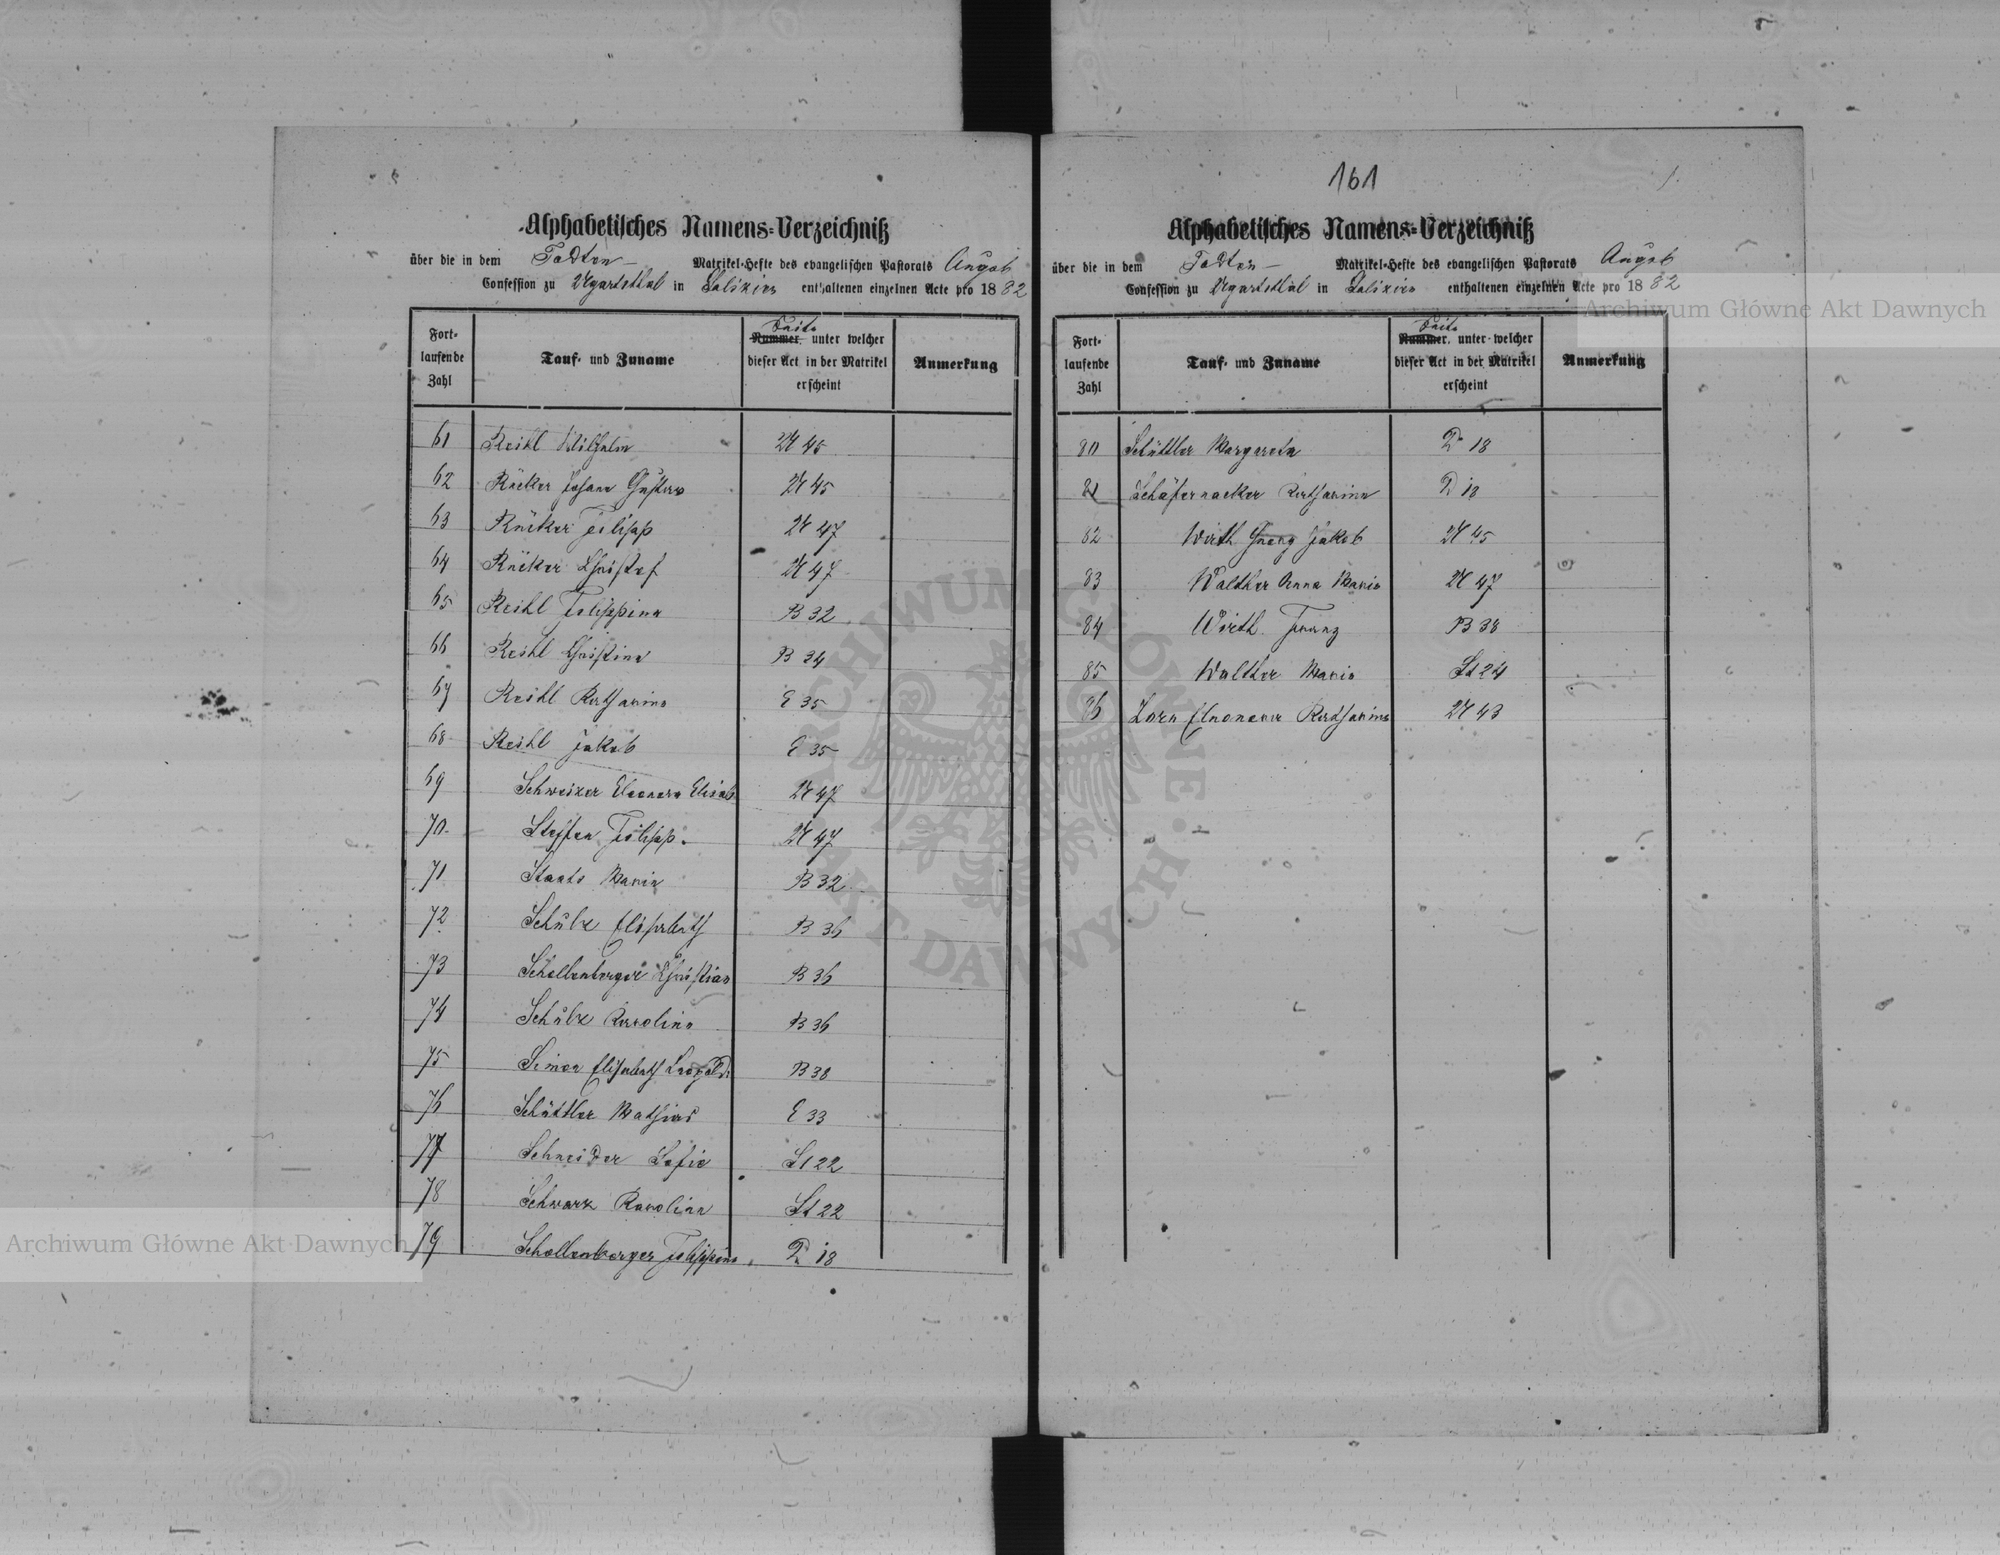 161
Alphabetisches Namens-Verzeichniß
über die in dem Todten- Matrikel-Hefte des evangelischen Pastorats Augsb
Confession zu Ugartsthal in Galizien enthaltenen einzelnen Acte pro 1882
Fortlaufende Zahl Tauf- und Zuname Seite Nummer unter welcher dieser Act in der Matrikel erscheint Anmerkung
61 Reihl Wilhelm U 45
62 Rücker Johann Gustav U 45
63 Rücker Filipp U 47
64 Rücker Christof U 47
65 Reihl Filippina B 32
66 Reihl Christina B 34
67 Reihl Katharina E 35
68 Reihl Jakob E 35
69 Schweizer Eleonora Elisab U 47
70 Steffen Filipp U 47
71 Staats Maria B 32
72 Schulz Elisabeth B 36
73 Schollenberger Christian B 36
74 Schulz Karolina B 36
75 Simon Elisabeth Leopoldi B 38
76 Schüttler Mathias E 33
77 Schneider Sofie St 22
78 Schwarz Karolina St 22
79 Schollenberger Filippina D 18
Alphabetisches Namens-Verzeichniß
über die in dem Todten- Matrikel-Hefte des evangelischen Pastorats Augsb
Confession zu Ugartsthal in Galizien enthaltenen einzelnen Acte pro 1882
Fortlaufende Zahl Tauf- und Zuname Seite Nummer unter welcher dieser Act in der Matrikel erscheint Anmerkung
80 Schüttler Margareta D 18
81 Schäfernacker Katharina D 18
82 Wirth Georg Jakob U 45
83 Walther Anna Maria U 47
84 Wirth Franz B 38
85 Walther Maria St 24
86 Zorn Eleonora Katharina U 43
Archiwum Główne Akt Dawnych
Archiwum Główne Akt Dawnych
ARCHIWUM GŁÓWNE AKT DAWNYCH